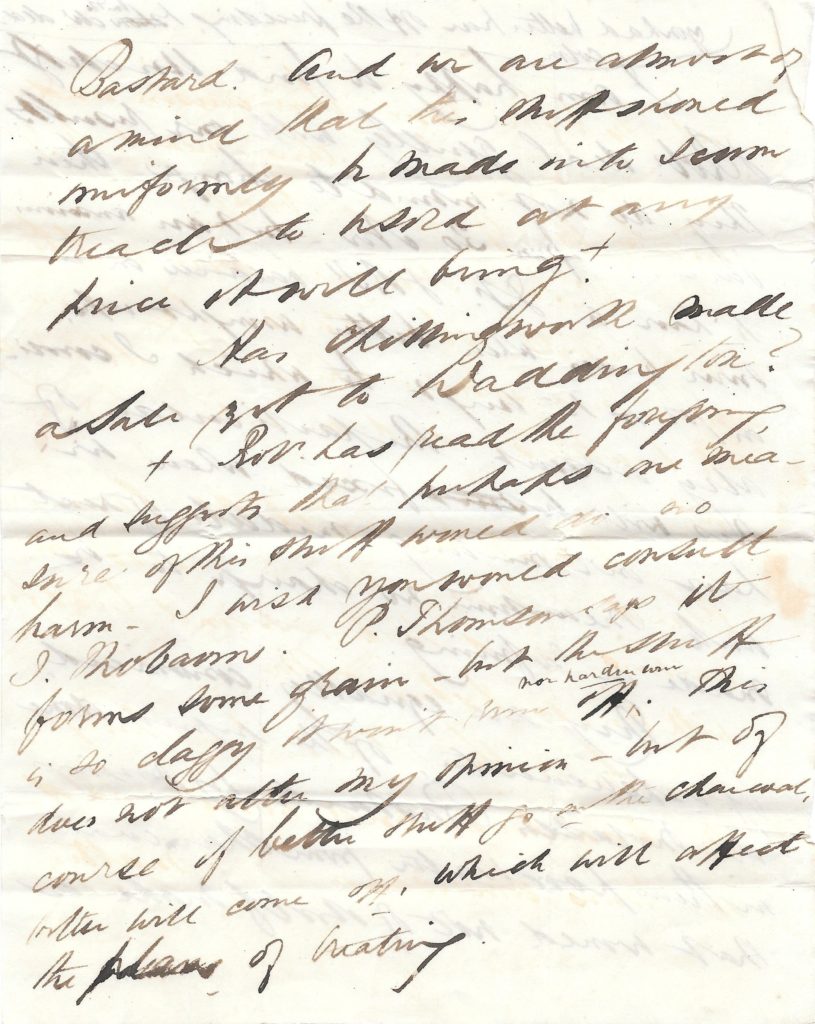 Bastard. And we are almost of
a mind that this stuff should
uniformly be made into Scum
treacle to be sold at any
price it will bring. +
Has Chillingworth made
a sale yet to Waddington?
+ Rob. has read the foregoing,
and suggests that perhaps one mea-
sure of this stuff would do no
harm - I wish you would consult
J. Thobaom. P. Thomson says it
forms some grain - but the stuff
nor harden
is so claggy it won't off. This
does not alter my opinion - but of
course if better stuff go on the charcoal,
better will come off, which will affect
the plans of treating.